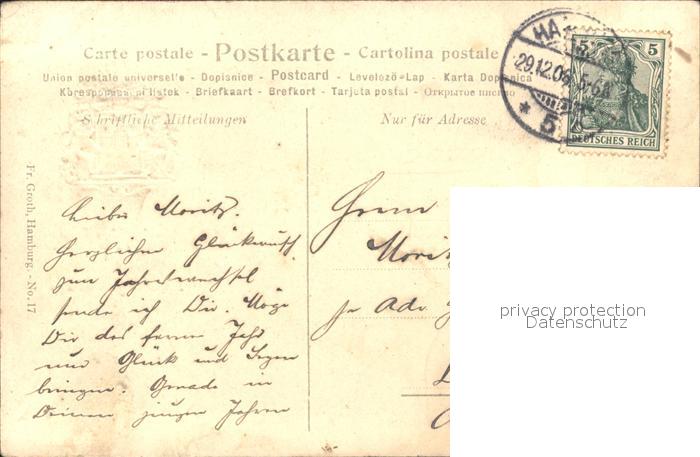 Carte postale - Postkarte - Cartolina postale
Union postale universelle - Dopisnice - Postcard - Levelező-Lap - Karta Dopisnica
Korespondenční lístek - Briefkaart - Brefkort - Tarjeta postal - Открытое письмо
Schriftliche Mitteilungen
Nur für Adresse
HA
29.12.06. 5-6
* 5
5 5
DEUTSCHES REICH
Fr. Groth, Hamburg. - No. 17
Lieber Moritz.
Herzlichen Glückwunsch
zum Jahreswechsel
sende ich Dir. Möge
Dir das ferne Jahr
nur Glück und Segen
bringen. Gerade in
Deinen jungen Jahren
Herrn
Morit
Adr.
privacy protection
Datenschutz